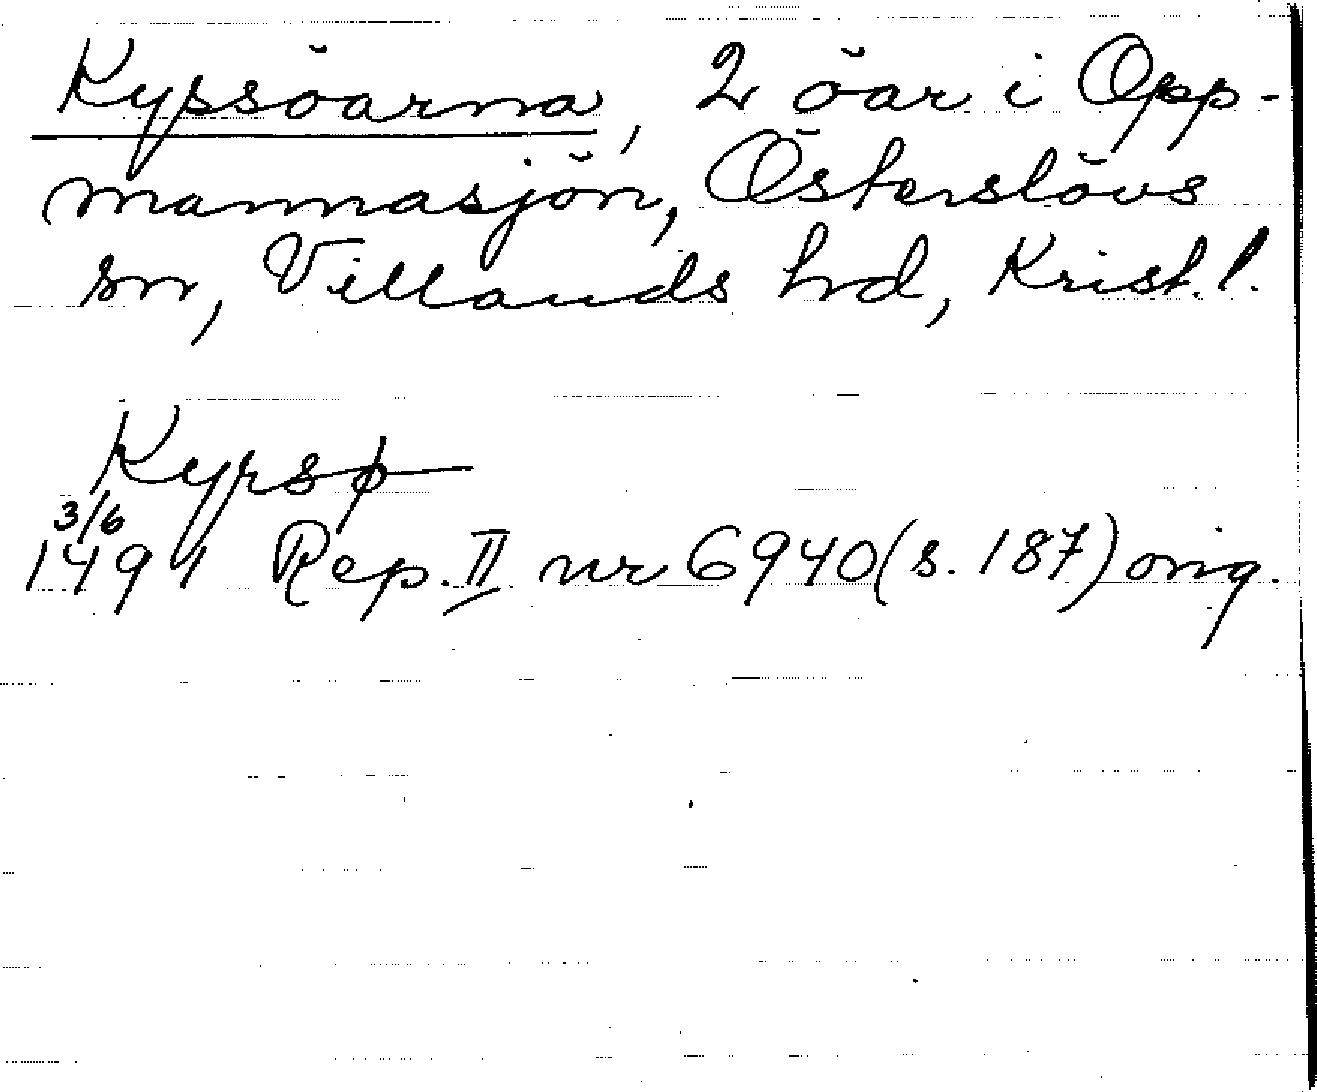 Kypsöarna, 2 öar i Opp-
mannasjön, Österslövs
sn, Villands hd, Krist. l.
Kyrsø
3/6
1491 Rep. II nr 6940 (s. 187) orig.